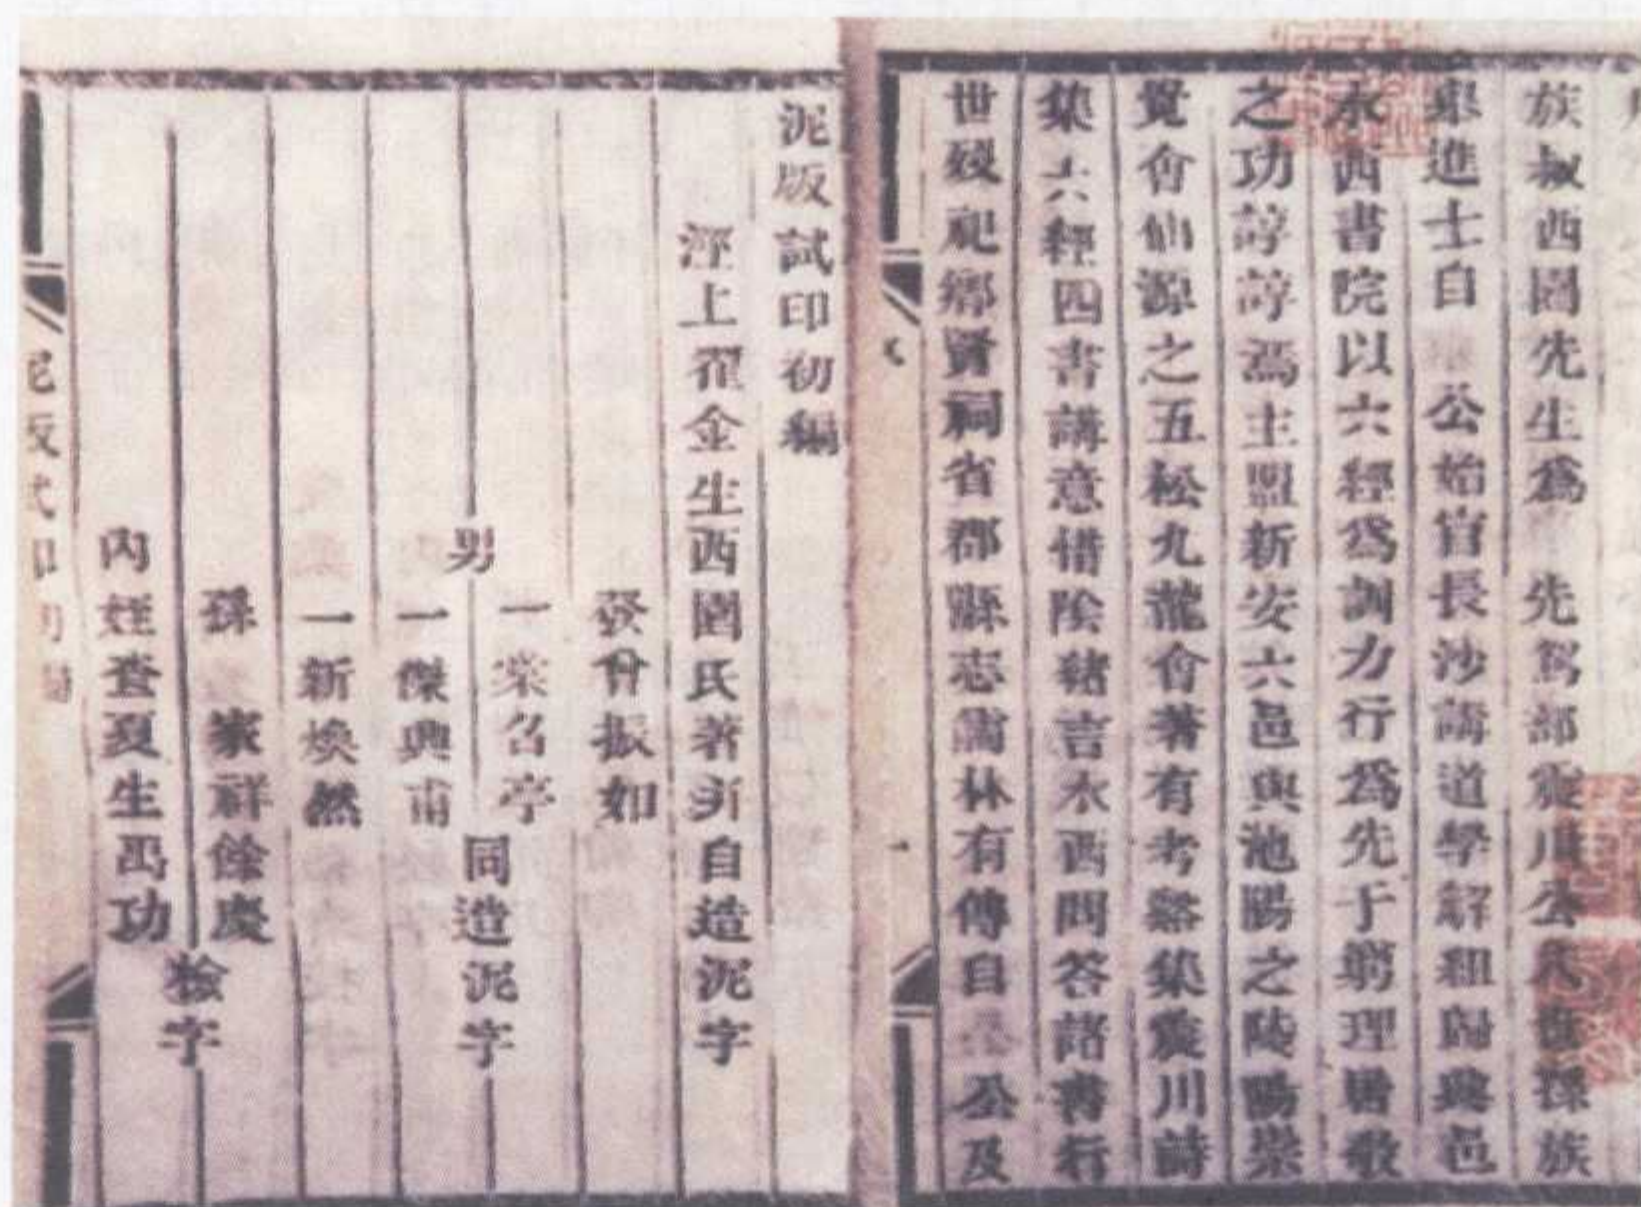 族叔西園先生爲 先駕部震川公孫族
舉進士自 公始官長沙講道學解組歸與邑
水西書院以六經爲訓力行爲先于窮理居敬
之功諄諄焉主盟新安六邑與池陽之陵陽崇
覺會仙源之五松九龍會著有考谿集震川詩
集六經四書講意惜陰緒言水西問答諸書行
世歿祀鄉賢祠省郡縣志儒林有傳自 公及
泥版試印初編
涇上翟金生西園氏著並自造泥字
發曾振如
男
一棠名亭
一傑興甫
一新煥然
同造泥字
孫 家祥餘慶
內姪查夏生禹功
檢字
泥版試印初編